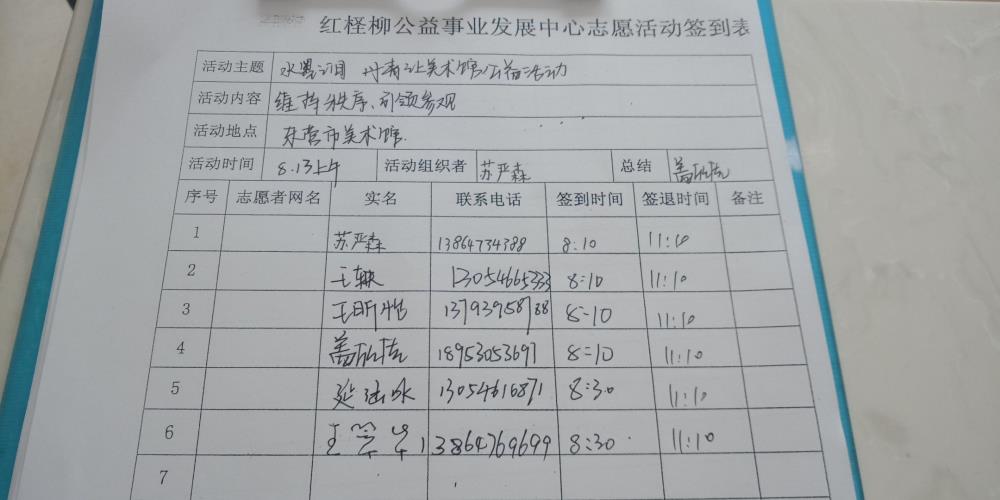 红柽柳公益事业发展中心志愿活动签到表
活动主题 美术馆公益活动
活动内容 维持秩序、引领参观
活动地点 东营市美术馆
活动时间 8.13上午 活动组织者 苏严森 总结 盖
序号 志愿者网名 实名 联系电话 签到时间 签退时间 备注
1 苏严森 13864734388 8:10 11:10
2 王 13054665333 8:10 11:10
3 王昕 13793958788 8:10 11:10
4 盖 18953053697 8:10 11:10
5 延涵冰 13054616871 8:30 11:10
6 王 13864769699 8:30 11:10
7